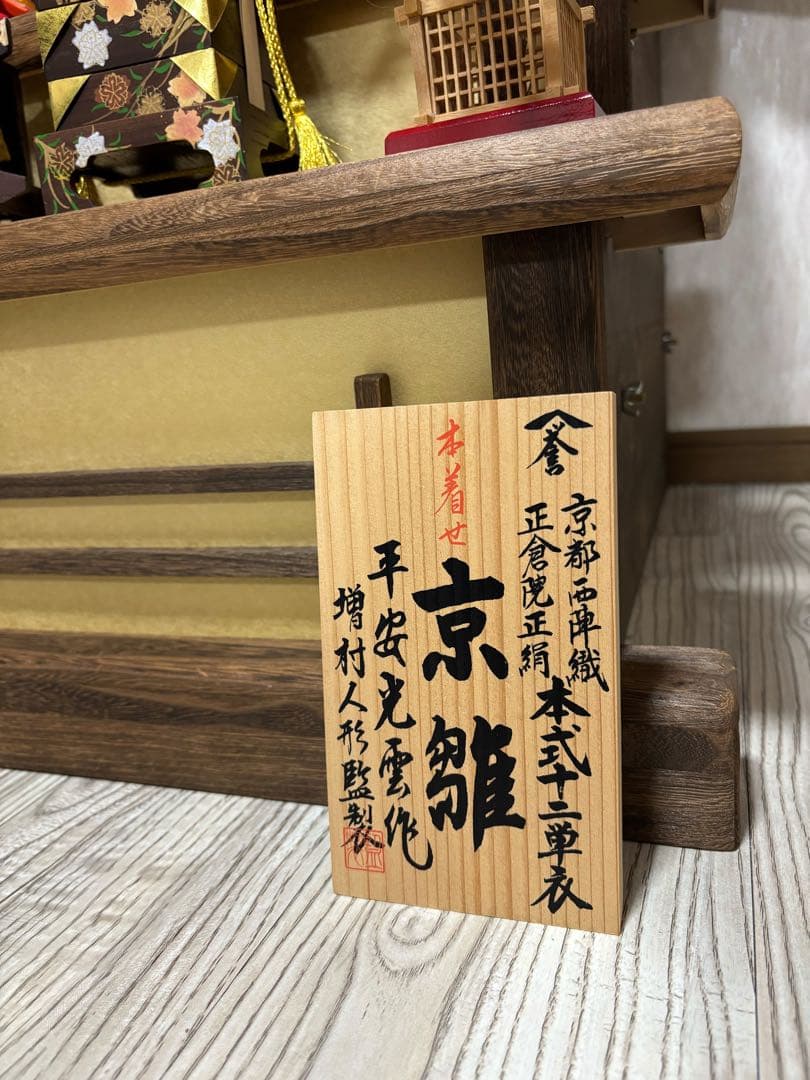 誉
京都西陣織
正倉院正絹
本式十二単衣
本着せ
京雛
平安光雲作
増村人形監製